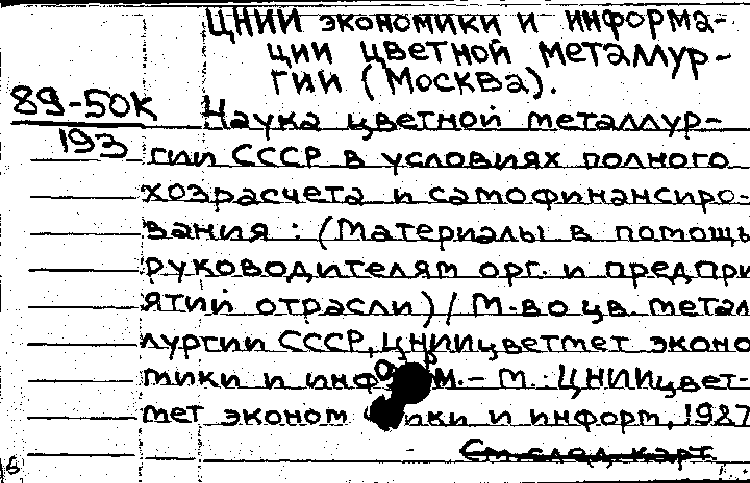 ЦНИИ экономики и информа-
ции цветной металлур-
гии (Москва).
89-50К
193
Наука цветной металлур-
гии СССР в условиях полного
хозрасчета и самофинансиро-
вания : (Материалы в помощь
руководителям орг. и предпри
ятий отрасли) / М-во цв. метал
лургии СССР, ЦНИИцветмет эконо
мики и информ. – М : ЦНИИцвет-
мет экономики и информ, 1987
См. след. карт.